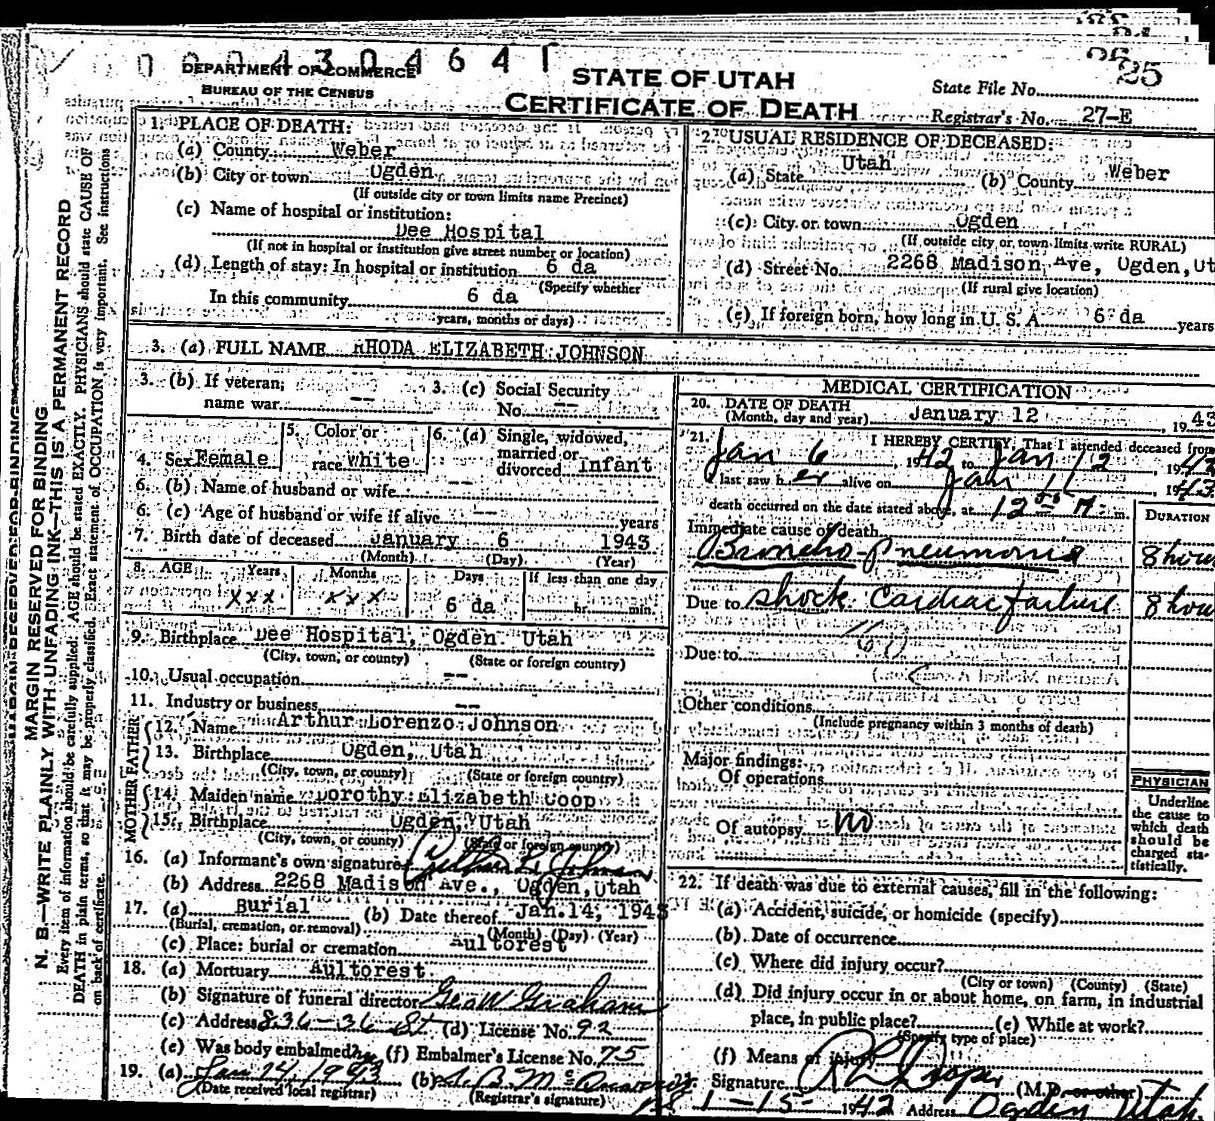 0004304641
DEPARTMENT OF COMMERCE
BUREAU OF THE CENSUS
STATE OF UTAH
CERTIFICATE OF DEATH
25
State File No.
Registrar's No. 27-E
1. PLACE OF DEATH:
(a) County Weber
(b) City or town Ogden
(If outside city or town limits name Precinct)
(c) Name of hospital or institution:
Dee Hospital
(If not in hospital or institution give street number or location)
(d) Length of stay: In hospital or institution 6 da
(Specify whether
In this community 6 da
years, months or days)
2. USUAL RESIDENCE OF DECEASED:
(a) State Utah (b) County Weber
(c) City or town Ogden
(If outside city or town limits write RURAL)
(d) Street No. 2268 Madison Ave, Ogden, Ut
(If rural give location)
(e) If foreign born, how long in U. S. A. 6 da years
3. (a) FULL NAME RHODA ELIZABETH JOHNSON
3. (b) If veteran, name war --
3. (c) Social Security No. --
4. Sex Female
5. Color or race White
6. (a) Single, widowed, married or divorced Infant
6. (b) Name of husband or wife --
6. (c) Age of husband or wife if alive -- years
7. Birth date of deceased January 6 1943
(Month) (Day) (Year)
8. AGE Years Months Days If less than one day
xxx xxx 6 da hr. min.
9. Birthplace Dee Hospital, Ogden Utah
(City, town, or county) (State or foreign country)
10. Usual occupation --
11. Industry or business --
FATHER
12. Name Arthur Lorenzo Johnson
13. Birthplace Ogden, Utah
(City, town, or county) (State or foreign country)
MOTHER
14. Maiden name Dorothy Elizabeth Coop
15. Birthplace Ogden, Utah
(City, town, or county) (State or foreign country)
16. (a) Informant's own signature Arthur L. Johnson
(b) Address 2268 Madison Ave., Ogden, Utah
17. (a) Burial (b) Date thereof Jan. 14, 1943
(Burial, cremation, or removal) (Month) (Day) (Year)
(c) Place: burial or cremation Aultorest
18. (a) Mortuary Aultorest
(b) Signature of funeral director Geo W Graham
(c) Address 836-36 St (d) License No. 92
(e) Was body embalmed? (f) Embalmer's License No. 75
19. (a) Jan 14, 1943 (b)
(Date received local registrar) (Registrar's signature)
MEDICAL CERTIFICATION
20. DATE OF DEATH
(Month, day and year) January 12, 1943
21. I HEREBY CERTIFY, That I attended deceased from
Jan 6, 1942 to Jan 12, 1943
I last saw her alive on Jan 11, 1943
death occurred on the date stated above, at 12 m.
Immediate cause of death
DURATION
Broncho-pneumonia 8 hou
Due to shock Cardiac failure 8 hou
Due to
Other conditions
(Include pregnancy within 3 months of death)
Major findings:
Of operations
Of autopsy no
PHYSICIAN
Underline
the cause to
which death
should be
charged sta-
tistically.
22. If death was due to external causes, fill in the following:
(a) Accident, suicide, or homicide (specify)
(b) Date of occurrence
(c) Where did injury occur?
(City or town) (County) (State)
(d) Did injury occur in or about home, on farm, in industrial
place, in public place? (e) While at work?
(Specify type of place)
(f) Means of injury
23. Signature (M.D. or other)
1-15- 1942 Address Ogden Utah.
MARGIN RESERVED FOR BINDING
N. B.—WRITE PLAINLY WITH UNFADING INK—THIS IS A PERMANENT RECORD
Every item of information should be carefully supplied. AGE should be stated EXACTLY. PHYSICIANS should state CAUSE OF
DEATH in plain terms, so that it may be properly classified. Exact statement of OCCUPATION is very important. See instructions
on back of certificate.